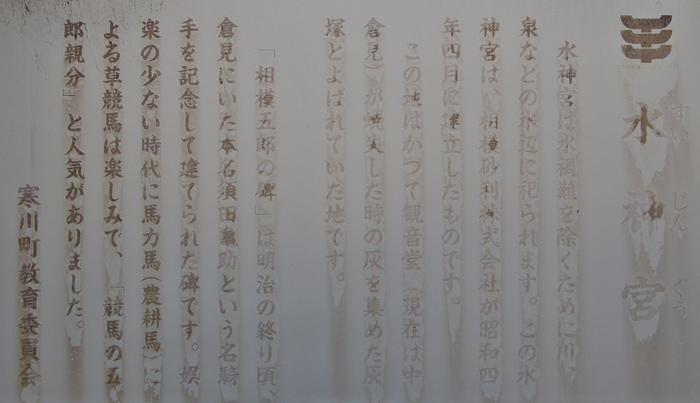 すい じん ぐう
水神宮
水神宮は水禍難を除くために川、
泉などの水辺に祀られます。この水
神宮は、相模砂利株式会社が昭和四
年四月に建立したものです。
この地はかつて観音堂（現在は中
倉見）が焼失した時の灰を集めた灰
塚とよばれていた地です。
「相模五郎の碑」は明治の終り頃、
倉見にいた本名須田亀助という名騎
手を記念して建てられた碑です。娯
楽の少ない時代に馬力馬（農耕馬）に
よる草競馬は楽しみで、「競馬の五
郎親分」と人気がありました。
寒川町教育委員会